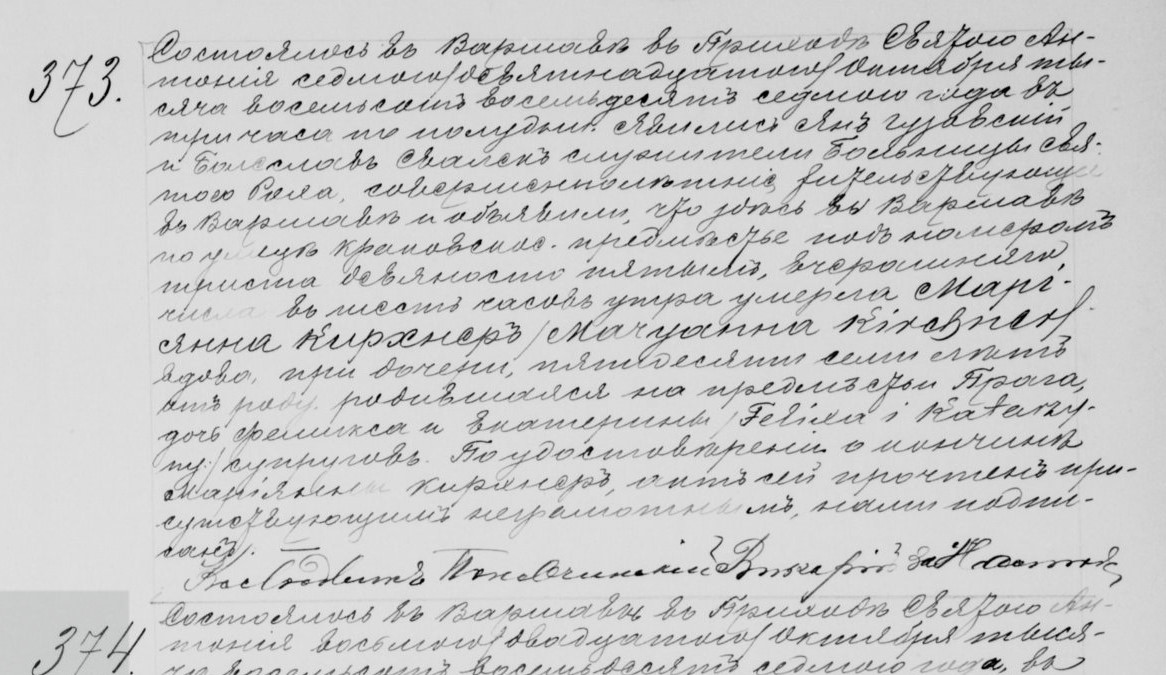 373.
Состоялось въ Варшавѣ въ Приходѣ Святого Ан-
тонія седмого/девятнадцатого/ Октября ты-
сяча восемьсотъ восемьдесятъ седмого года въ
три часа по полудни. Явились Янъ Гузовскій
и Болеславъ служители Больницы Свя-
того Роха, совершеннолѣтніе, жительствующіе
въ Варшавѣ и объявили, что здѣсь въ Варшавѣ
по улицѣ Краковское-предмѣстье подъ номеромъ
триста девяносто пятымъ, вчерашняго
числа въ шесть часовъ утра умерла Марі-
янна Кирхнеръ /Maryanna Kirchner/
вдова, при дочери, пятидесяти семи лѣтъ
отъ роду, родившаяся на предмѣстьи Прага,
дочь Феликса и Екатерины /Felixa i Katarzy-
ny/ супруговъ. По удостовѣреніи о кончинѣ
Маріянны Кирхнеръ, актъ сей прочтенъ при-
сутствующимъ неграмотнымъ, нами подпи-
санъ. —
Викарій за
374.
Состоялось въ Варшавѣ въ Приходѣ Святого Ан-
тонія восьмого/двадцатого/ Октября тыся-
ча восемьсотъ восемьдесятъ седмого года, въ